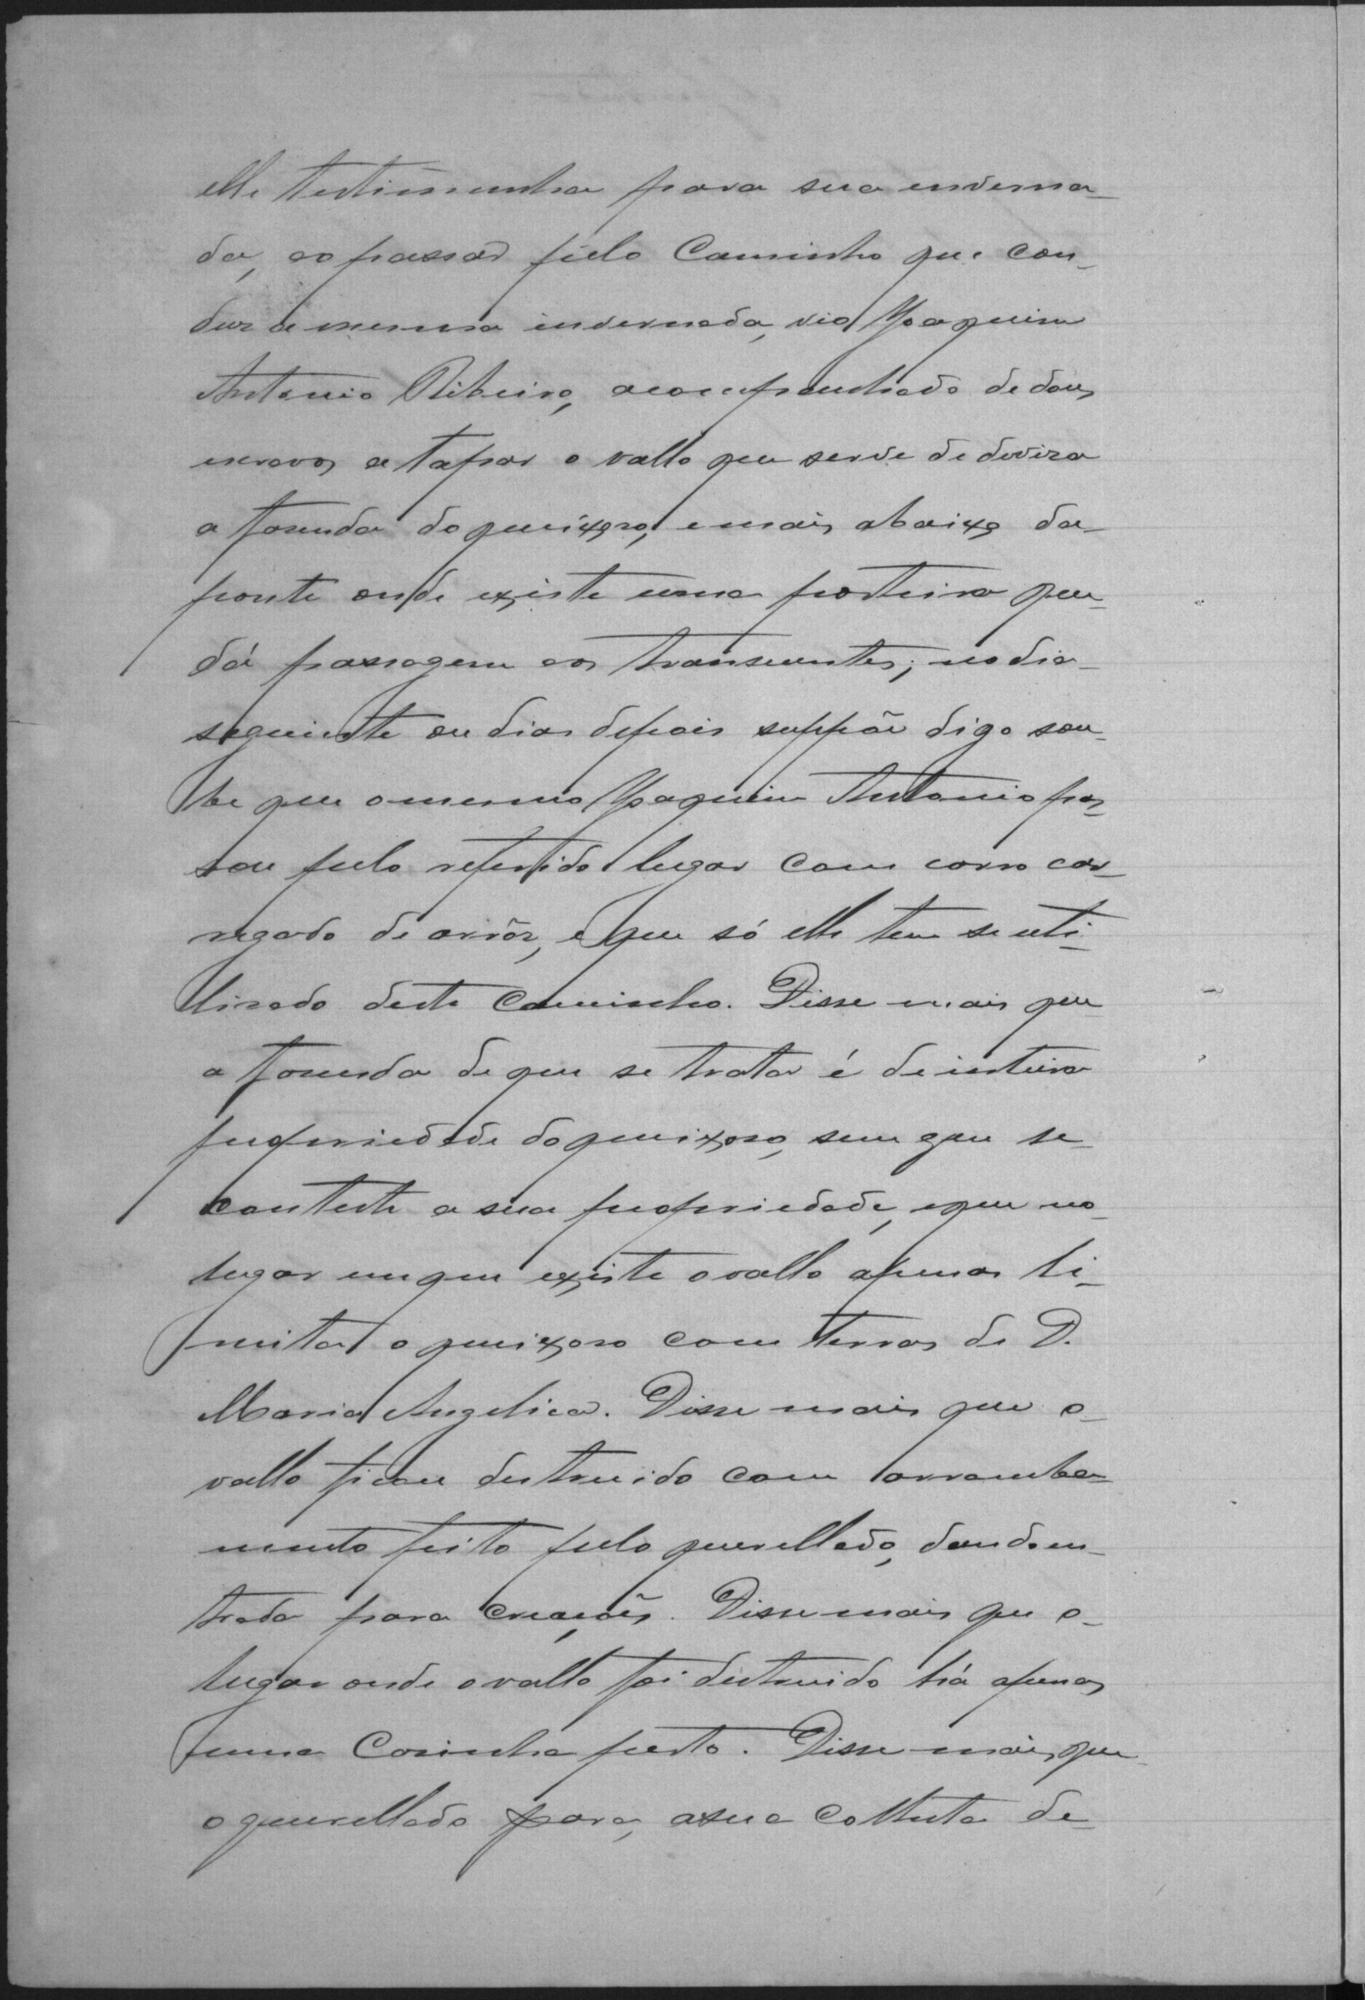 elle testimunha para sua inverna-
da, ao passar pelo Caminho que con-
duz a mesma invernada, vio Joaquim
Antonio Ribeiro, acompanhado de dous
escravos a tapar o vallo que serve de diviza
a fazenda do queixoso, e mais abaixo da
ponte onde existe uma porteira que
dá passagem aos transeuntes; no dia
seguinte ou dias depois suppõe digo sou-
be que o mesmo Joaquim Antonio pas-
sou pelo referido lugar com carro car-
regado de arrôz, e que só elle tem se uti-
lisado deste Caminho. Disse mais que
a fazenda de que se trata é de inteira
propriedade do queixoso, sem que se
conteste a sua propriedade, e que no
lugar em que existe o vallo apenas li-
mita o queixoso com terras de D.
Maria Angelica. Disse mais que o
vallo ficou destruido com arromba-
mento feito pelo querellado, dando en-
trada para criações. Disse mais que o
lugar onde o vallo foi destruido há apenas
uma Cosinha perto. Disse mais que
o querellado para, a sua Colheita de